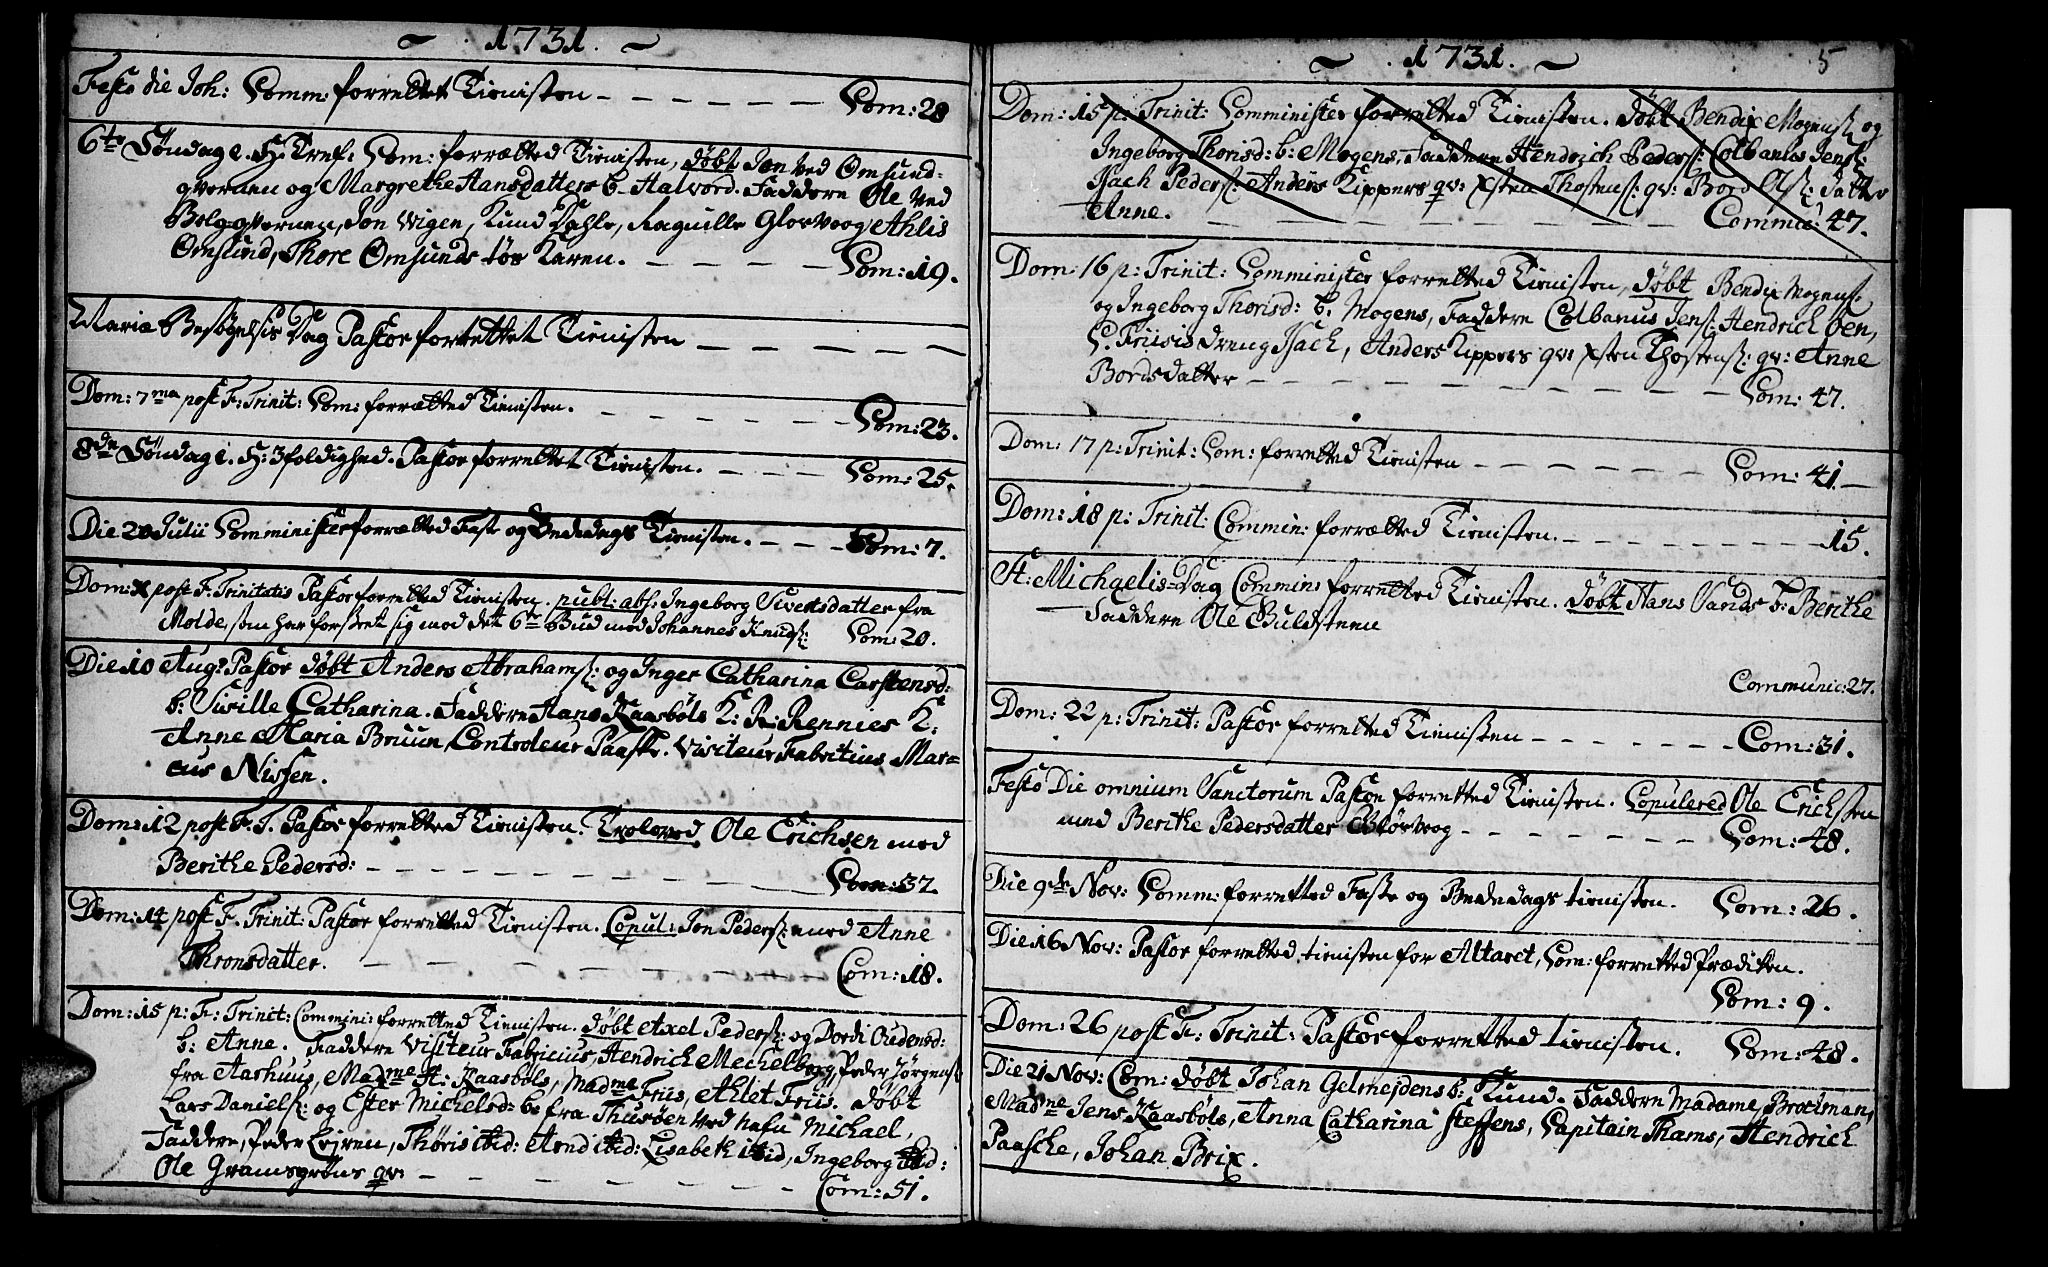 1731.
Festo die Joh: Comm: forrettet Tienisten Com: 28
6te Söndag e. H. Tref. Com: forrætted Tienisten, döbt Jon ved Ømsund-
qvernen og Margrethe Hansdatters b. Halvord. Faddere Ole ved
Bolgqvernen, Jon Wigen, Knud Dahle, Raguille Glorvoog Ahlis
Ømsund, Thore Ømsunds tös Karen. Com: 19.
Mariæ Besögelsis Dag Pastor forrettet Tienisten
Dom: 7ma post F: Trinit: Com: forrætted Tienisten. Com: 23.
8de Söndag e. H: 3foldighed. Pastor forrettet Tienisten. Com: 25.
Die 20 Julii Comminister forrætted Faste og Bededags Tienisten. Com: 7.
Dom: X post F. Trinitatis Pastor forretted Tienisten. publ: abs: Ingeborg Sivertsdatter fra
Molde, som har forseet sig mod det 6te Bud med Johannes Knuds: Com: 20.
Die 10 Aug: Pastor döbt Anders Abrahams: og Inger Catharina Carstensd:
b: Sisille Catharina. Faddere Hans Kaasböls K: R: Rennies K:
Anne Maria Bruun, Controleur Paaske. Visiteur Fabritius Mar=
cus Nissen.
Dom: 12 post F. T. Pastor forretted Tienisten. Troloved Ole Erichsen med
Berithe Pedersd: Com: 37.
Dom: 14 post F. Trinit: Pastor forretted Tienisten. Copul: Jon Peders: med Anne
Thronsdatter. Com: 18.
Dom: 15 p: F: Trinit: Commini: forretted Tienisten. döbt Axel Peders: og Dordi Gudensd:
b: Anne. Faddere Visiteur Fabricius, Hendrich Mechelborg, Peder Jörgens:
fra Aarhuus, Madme H: Kaasböls, Madme Friis, Ahlet Friis. döbt
Lars Daniels: og Ester Michelsd: b. fra Thusöen ved hafn Michael,
Faddere, Peder Lejren, Thöris ibid: Arnd ibid: Lisabeth ibid, Ingeborg ibid:
Ole Gramsgröns qv: Com: 51.
1731. 5
Dom: 15 p: Trinit: Comminister forretted Tienisten. döbt Bendix Mogens: og
Ingeborg Thorisd: b: Mogens, Faddere Hendrich Peders: Colbanus Jens:
Isach Peders: Anders Kippers qv: Xsten Thostens: qv: Bord Ols: datter
Anne. Communi: 47.
Dom: 16 p: Trinit: Comminister forretted Tienisten, döbt Bendix Mogens:
og Ingeborg Thorisd: b. Mogens, Faddere Colbanus Jens: Hendrich
C. Friisis dreng Isach, Anders Kippers qv: Xsten Thostens: qv: Anne
Bordsdatter Com: 47.
Dom: 17 p: Trinit: Com: forretted Tienisten Com: 41.
Dom: 18 p: Trinit: Commin: forrætted Tienisten. 15.
St: Michaelis=Dag Commini forretted Tienisten. döbt Hans Sands b: Berithe
Faddere Ole Guldsteen
Communic: 27.
Dom: 22 p: Trinit: Pastor forretted Tienisten Com: 31.
Festo Die omnium Sanctorum Pastor forretted Tienisten. Copulered Ole Erichsen
med Berithe Pedersdatter Glörvoog Com: 48.
Die 9de Nov: Comm: forretted Faste og Bededags tienisten. Com: 26.
Die 16 Nov: Pastor forretted tienisten for Altaret, Com: forretted Prædiken.
Com: 9.
Dom: 26 post F: Trinit: Pastor forretted tienisten. Com: 48.
Die 21 Nov: Com: döbt Johan Gelmejdens b: Knud. Faddere Madame Brochman,
Madme Jens Kaasböls, Anna Catharina Steffens, Capitain Thams, Hendrich
Paasche, Johan Brix.